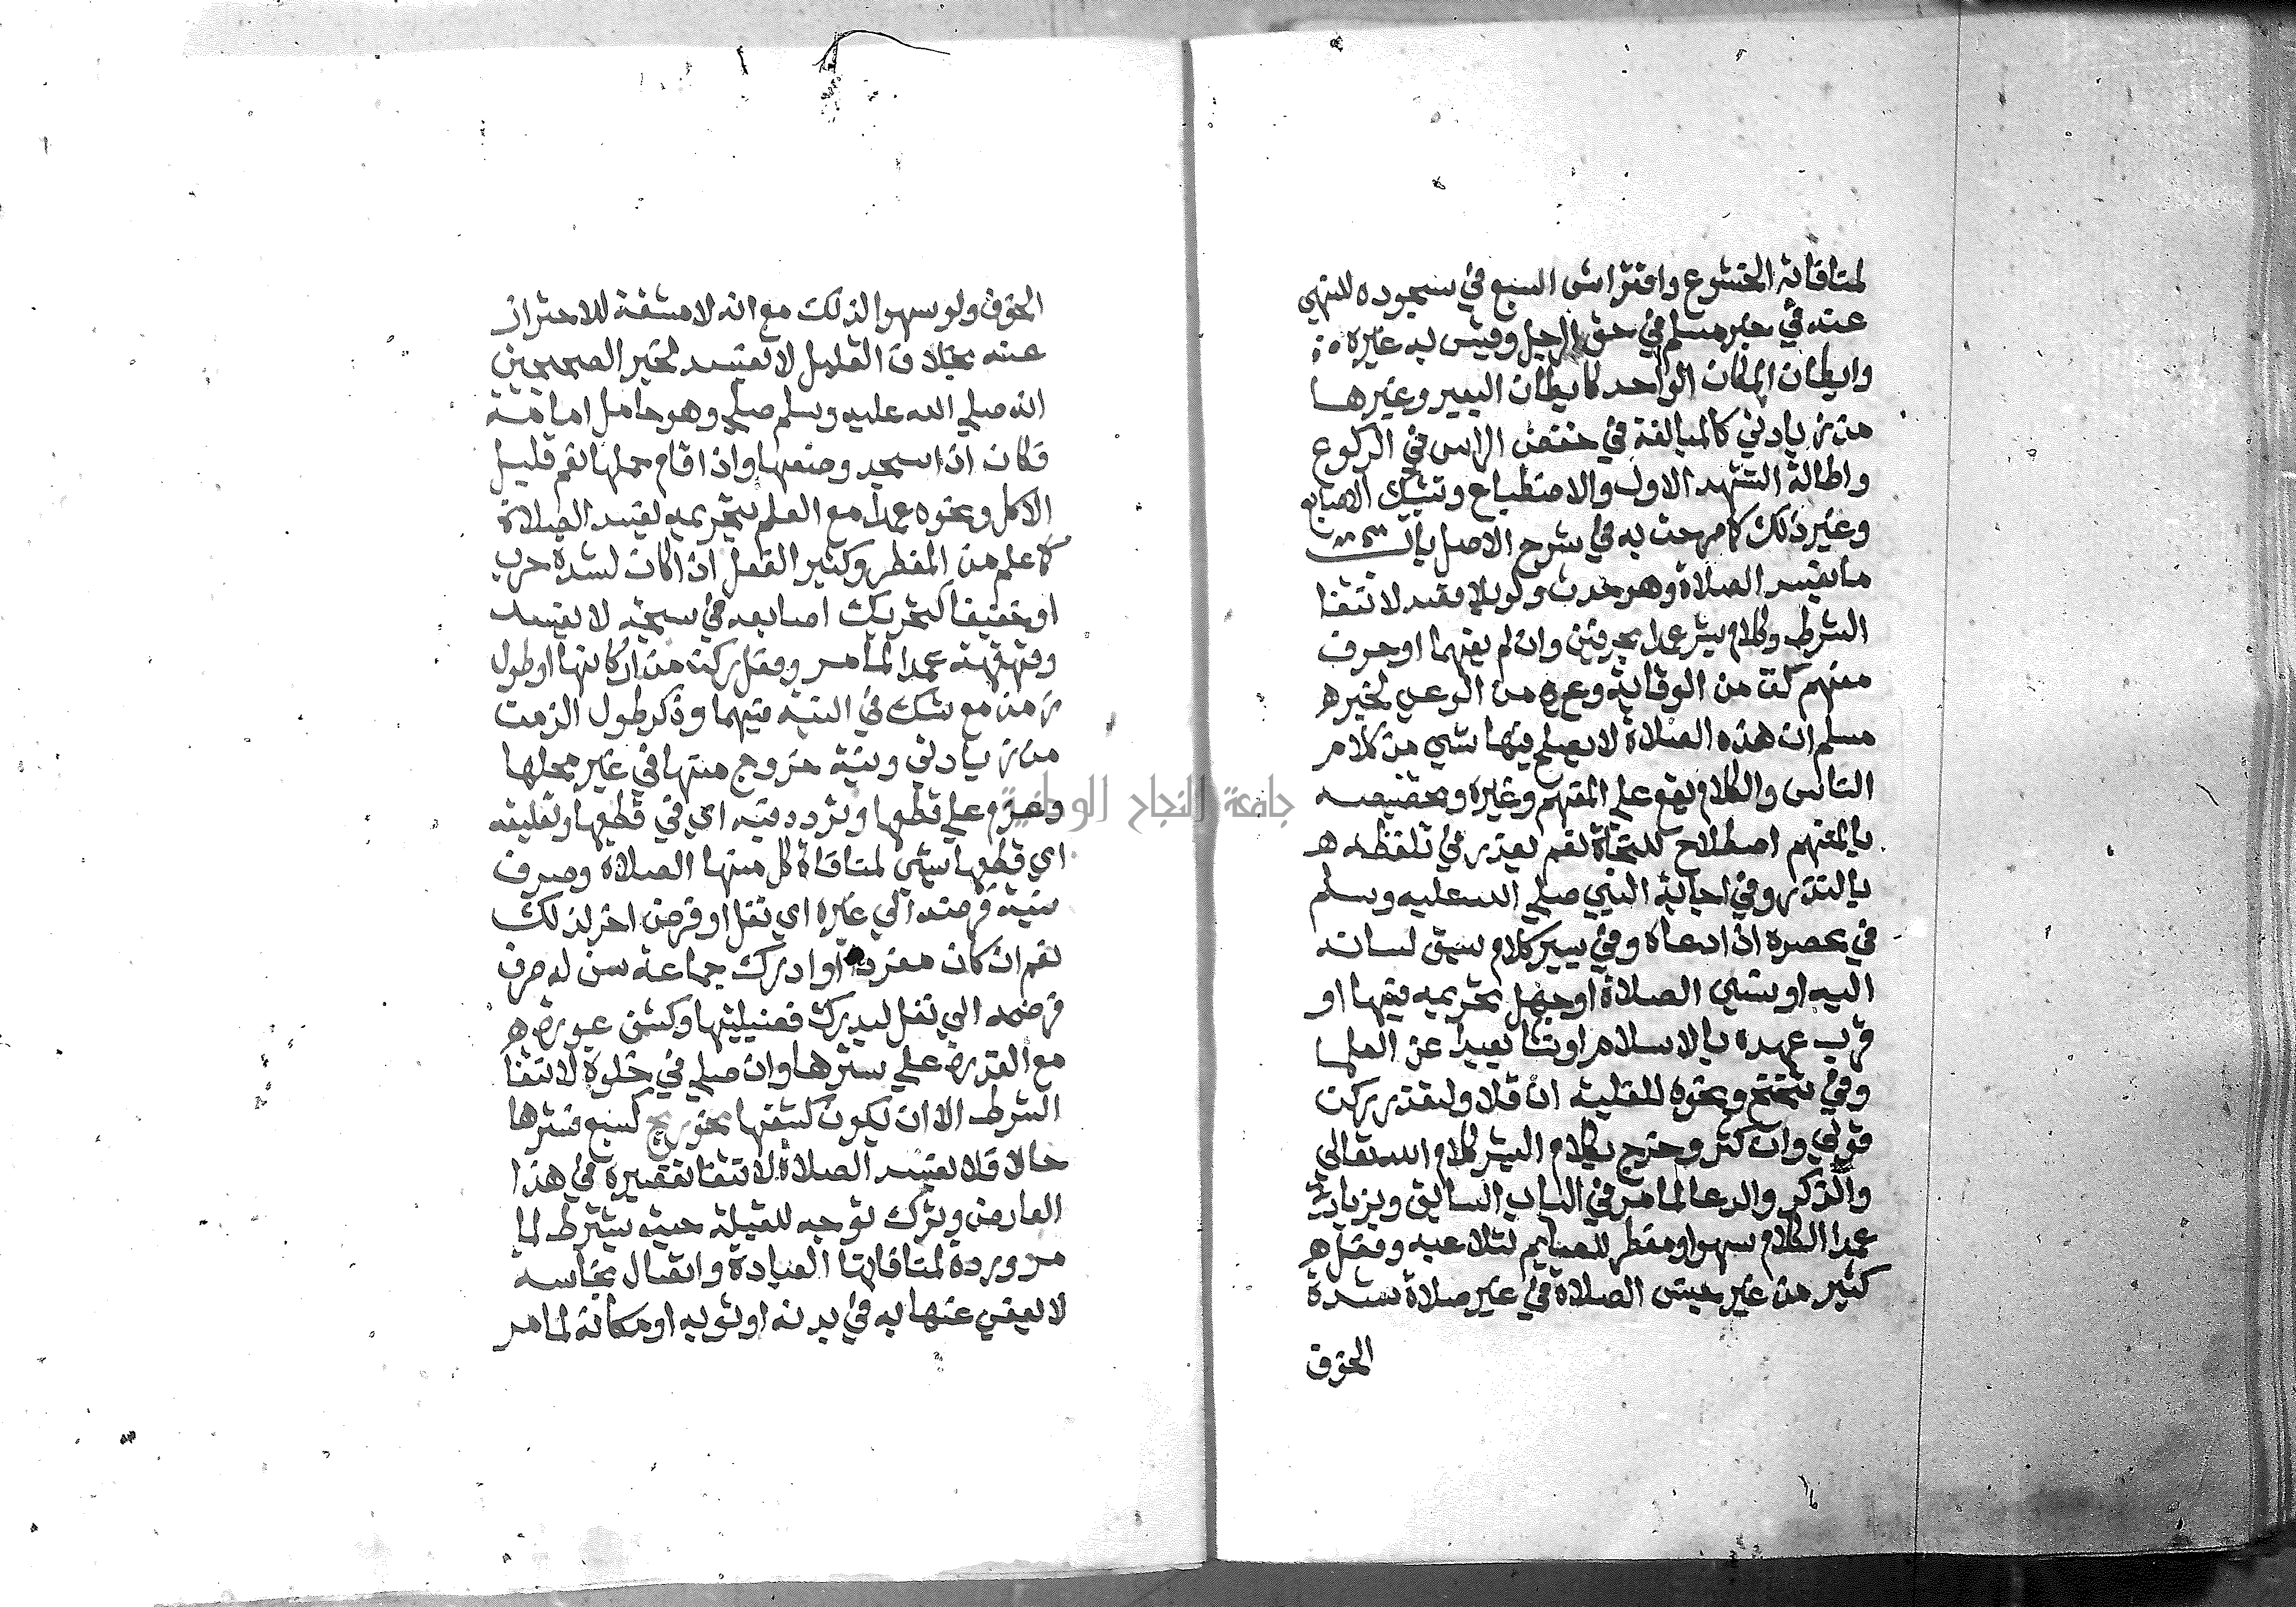 لمنافاته الخشوع وافتراش السبع في سجوده للنهي
عنه في خبر مسلم في حق الرجل وقيس به غيره
وايطان المكان الواحد كايطان البعير وغيرها
من زيادتي كالمبالغة في خفض الراس في الركوع
واطالة التشهد الاول والاضطباع وتشبيك الاصابع
وغير ذلك كما صرحت به في شرح الاصل باب
ما يفسد الصلاة وهو حدث ولو بلا قصد لانتفا
الشرط وكلام بشر عمدا بحرفين وان لم يفهما او حرف
مفهم كق من الوقاية وع من الوعي لخبر
مسلم ان هذه الصلاة لا يصلح فيها شي من كلام
الناس والكلام يقع علي المفهم وغيره وتخصيصه
بالمفهم اصطلاح للنحاة نعم يعذر في تلفظه
بالنذر وفي اجابة النبي صلي الله عليه وسلم
في عصره اذا دعاه وفي يسير كلام سبق لسانه
اليه او نسي الصلاة او جهل تحريمه فيها او
قرب عهده بالاسلام او نشا بعيدا عن العلما
وفي تنحنح ونحوه للغلبة ان قلا ولتعذر ركن
قولي وان كثر وخرج بكلام البشر كلام الله تعالي
والذكر والدعا لما مر في الباب السابق وبزيادتي
عمدا الكلام سهوا ومفطر للصايم لتلاعبه وفعل
كثير من غير جنس الصلاة في غير صلاة شدة
الخوف
الخوف ولو سهوا لذلك مع انه لا مشقة للاحتراز
عنه بخلاف القليل لا يفسد لخبر الصحيحين
انه صلي الله عليه وسلم صلي وهو حامل امامة
فكان اذا سجد وضعها واذا قام حملها نعم قليل
الاكل ونحوه عمدا مع العلم بتحريمه يفسد الصلاة
كما علم من المفطر وكثير الفعل اذا كان لشدة جرب
او خفيفا كتحريك اصابعه في سبحة لا يفسد
وقهقهة عمدا لما مر وفعل ركن من اركانها او طول
زمن مع شك في النية فيهما وذكر طول الزمن
من زيادتي ونية خروج منها في غير محلها
وعزم علي قطعها وتردد فيه اي في قطعها وتعليقه
اي قطعها بشي لمنافاة كل منها الصلاة وصرف
نية فرضه الي غيره اي نفل او فرض اخر لذلك
نعم ان كان منفردا وادرك جماعة سن له صرف
فرضه الي نفل ليدرك فضيلتها وكشف عورة
مع القدرة علي سترها وان صلي في خلوة لانتفا
الشرط الا ان يكون كشفها نحو ريح كسبع فسترها
حالا فلا يفسد الصلاة لانتفا تقصيره في هذا
العارض وترك توجه للقبلة حيث يشترط لما
مر وردة لمنافاتها العبادة واتصال نجاسة
لا يعفي عنها به في بدنه او ثوبه او مكانه لما مر
جامعة النجاح الوطنية